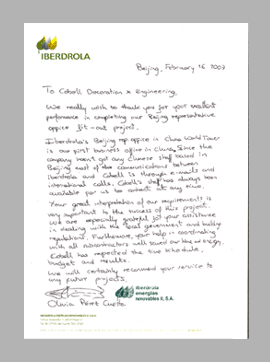 IBERDROLA
Beijing, February 16 2009
To Cobell Decoration & Engineering,
We really wish to thank you for your excellent
performance in completing our Beijing representative
office fit-out project.
Iberdrola's Beijing rep office in China World Tower
is our first business office in China. Since the
company hasn't got any Chinese staff based in
Beijing most of the communications between
Iberdrola and Cobell is through e-mails and
international calls. Cobell's staff has always been
available for us to contact at any time.
Your great interpretation of our requirements is
very important to the success of this project.
We are especially grateful of your assistance
in dealing with the local government and building
regulations. Furthermore, your help in coordinating
with all subcontractors well saved our time energy.
Cobell has respected the time schedule,
budget and results.
We will certainly recommend your service to
any future projects.
iberdrola
energías
renovables II, S.A.
Olivia Pérez